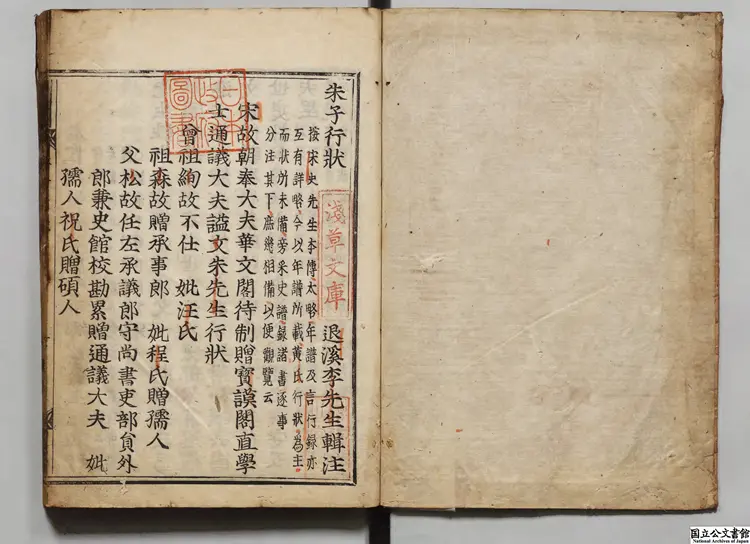 朱子行狀
退溪李先生輯注
按宋史先生本傳太略年譜及言行錄亦
互有詳略今以年譜所載黃氏行狀為主
而狀所未備旁采史譜錄諸書逐事
分注其下庶幾相備以便觀覽云
宋故朝奉大夫華文閣待制贈寶謨閣直學
士通議大夫謚文朱先生行狀
曾祖絢故不仕 妣汪氏
祖森故贈承事郎 妣程氏贈孺人
父松故任左承議郎守尚書吏部員外
郎兼史館校勘累贈通議大夫 妣
孺人祝氏贈碩人
淺草文庫
日本
政府
圖書
国立公文書館
National Archives of Japan